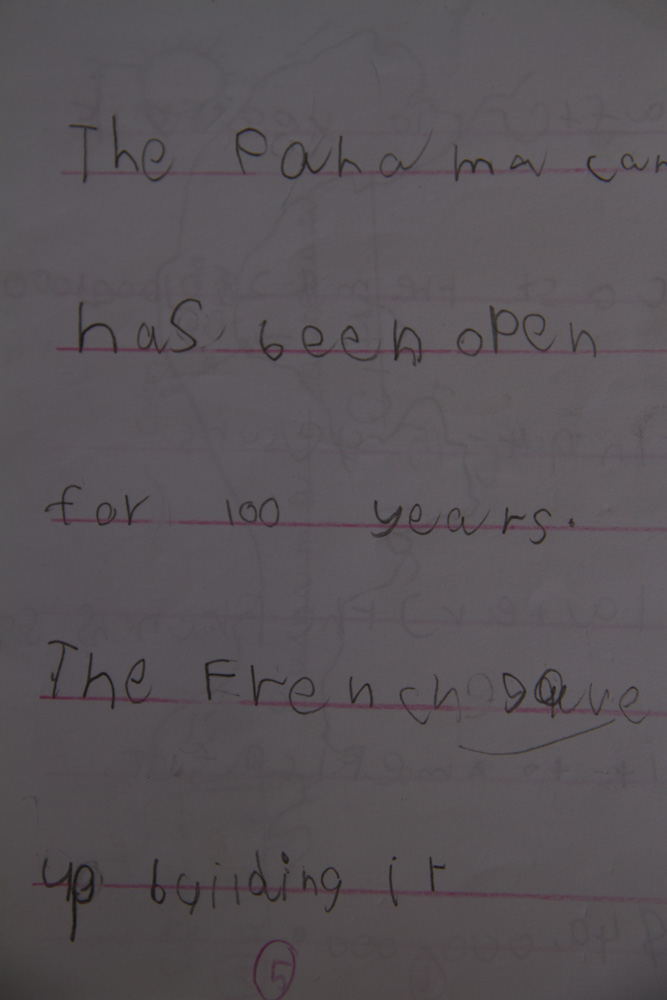 The Panama can
has been open
for 100 years.
The French gave
up building it
5